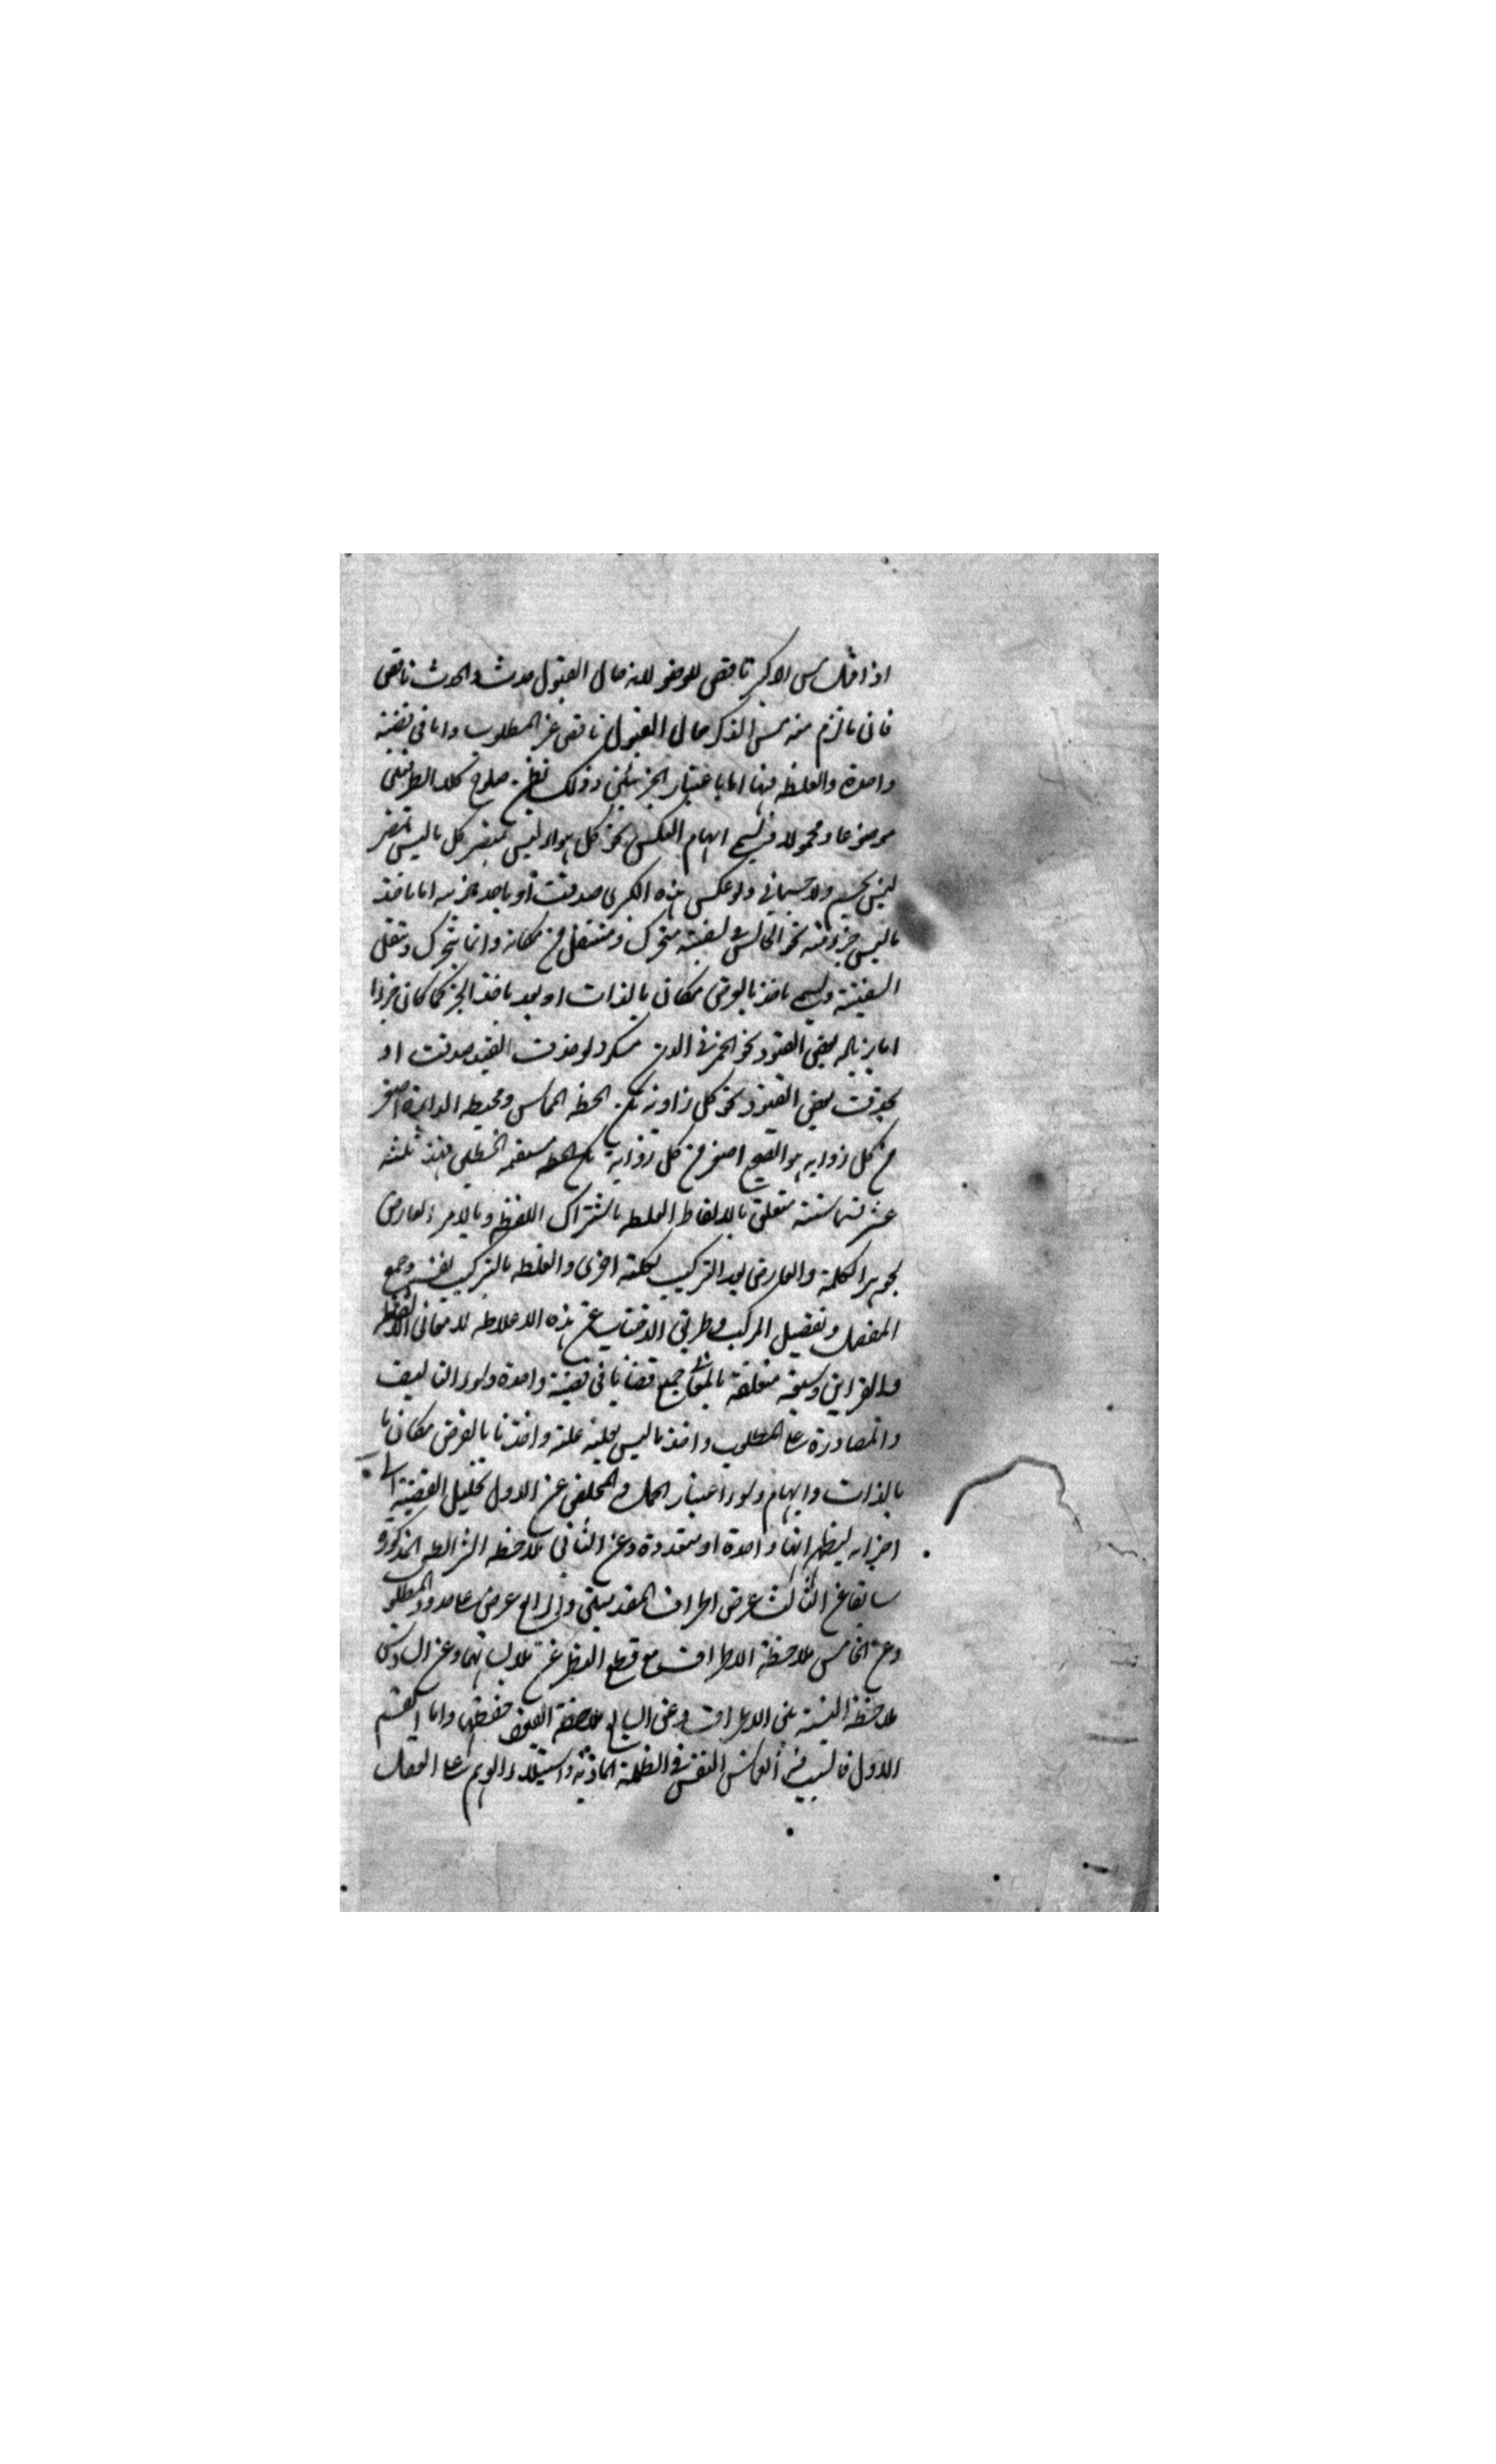 اذا قلت مس الذكر ناقض للوضوء لانه حال البول حدث والحدث ناقض
فان ما لزم منه مس الذكر حال البول ناقض غير المطلوب واما في قضية
واحدة والغلط فيها اما باعتبار الجزئين وذلك نظرا صلوح كلا الطرفين
موضوعا ومحمولا فيسمى ايهام العكس نحو كل هواء ليس بمبصر كل ما ليس بمبصر
ليس بجسم ولا جسماني ولو عكس هذه الكبرى صدقت او باحد جزئيه اما باخذ
ما ليس جزء منه نحو الجالس في السفينة متحرك ومنتقل من مكانه وانما يتحرك وينتقل
السفينة ويسمى باخذ ما بالعرض مكان ما بالذات او بعد باخذ الجزء كما كان جزءا
اما بزيادة بعض القيود نحو الخمر في الدن مسكر ولو حذفت القيد صدقت او
بحذف بعض القيود نحو كل زاوية بين الخط المماس ومحيط الدائرة اصغر
من كل زواية هو الصحيح اصغر من كل زواية بين الخط مستقيم الخطين فهذه ثلثة
عشر منها ستة متعلق بالالفاظ الغلط باشتراك اللفظ وبالامر العارض
بجوهر الكلمة والعارض بعد التركيب بكلمة اخرى والغلط بالتركيب بنفسه وجمع
المفصل وتفصيل المركب وطريق الاجتناب عن هذه الاغلاط لا معاني الالفاظ
والقراين وسبعة متعلقة بالمعاني جمع قضايا في قضية واحدة وسوء التاليف
والمصادرة على المطلوب واخذ ما ليس بعلية علة واخذ ما بالعرض مكان ما
بالذات وايهام وسوء اعتبار الحمل والمخلص عن الاول تحليل القضية الى
اجزائه ليظهر انها واحدة او متعددة وعن الثاني ملاحظة الشرائط المذكورة
سابقا عن الثالث عرض اطراف المقدمتين والرابع عرض على حدود المطلوب
وعن الخامس ملاحظة الاطراف مع قطع النظر عن ملابساتها وعن السادس
ملاحظة النسبة بين الاطراف وعن السابع ملاحظة القيود حفظها واما القسم
الاول فالسبب فيه انغماس النفس في الظلمة المادية واستيلاء الوهم على العقل